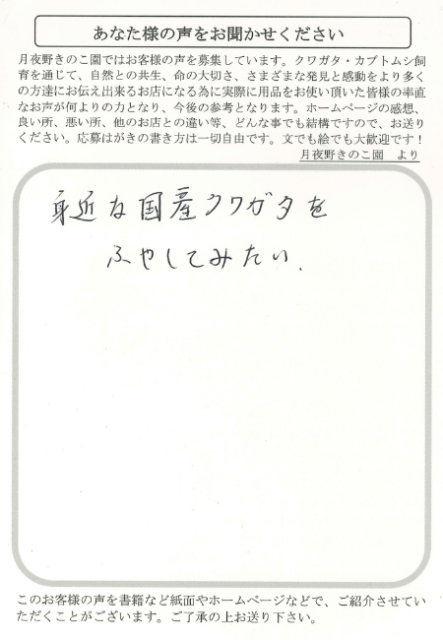 あなた様の声をお聞かせください
月夜野きのこ園ではお客様の声を募集しています。クワガタ・カブトムシ飼
育を通じて、自然との共生、命の大切さ、さまざまな発見と感動をより多く
の方達にお伝え出来るお店になる為に実際に用品をお使い頂いた皆様の率直
なお声が何よりの力となり、今後の参考となります。ホームページの感想、
良い所、悪い所、他のお店との違い等、どんな事でも結構ですので、お送り
ください。応募はがきの書き方は一切自由です。文でも絵でも大歓迎です！
月夜野きのこ園　より
身近な国産クワガタを
ふやしてみたい.
このお客様の声を書籍など紙面やホームページなどで、ご紹介させてい
ただくことがございます。ご了承の上お送り下さい。